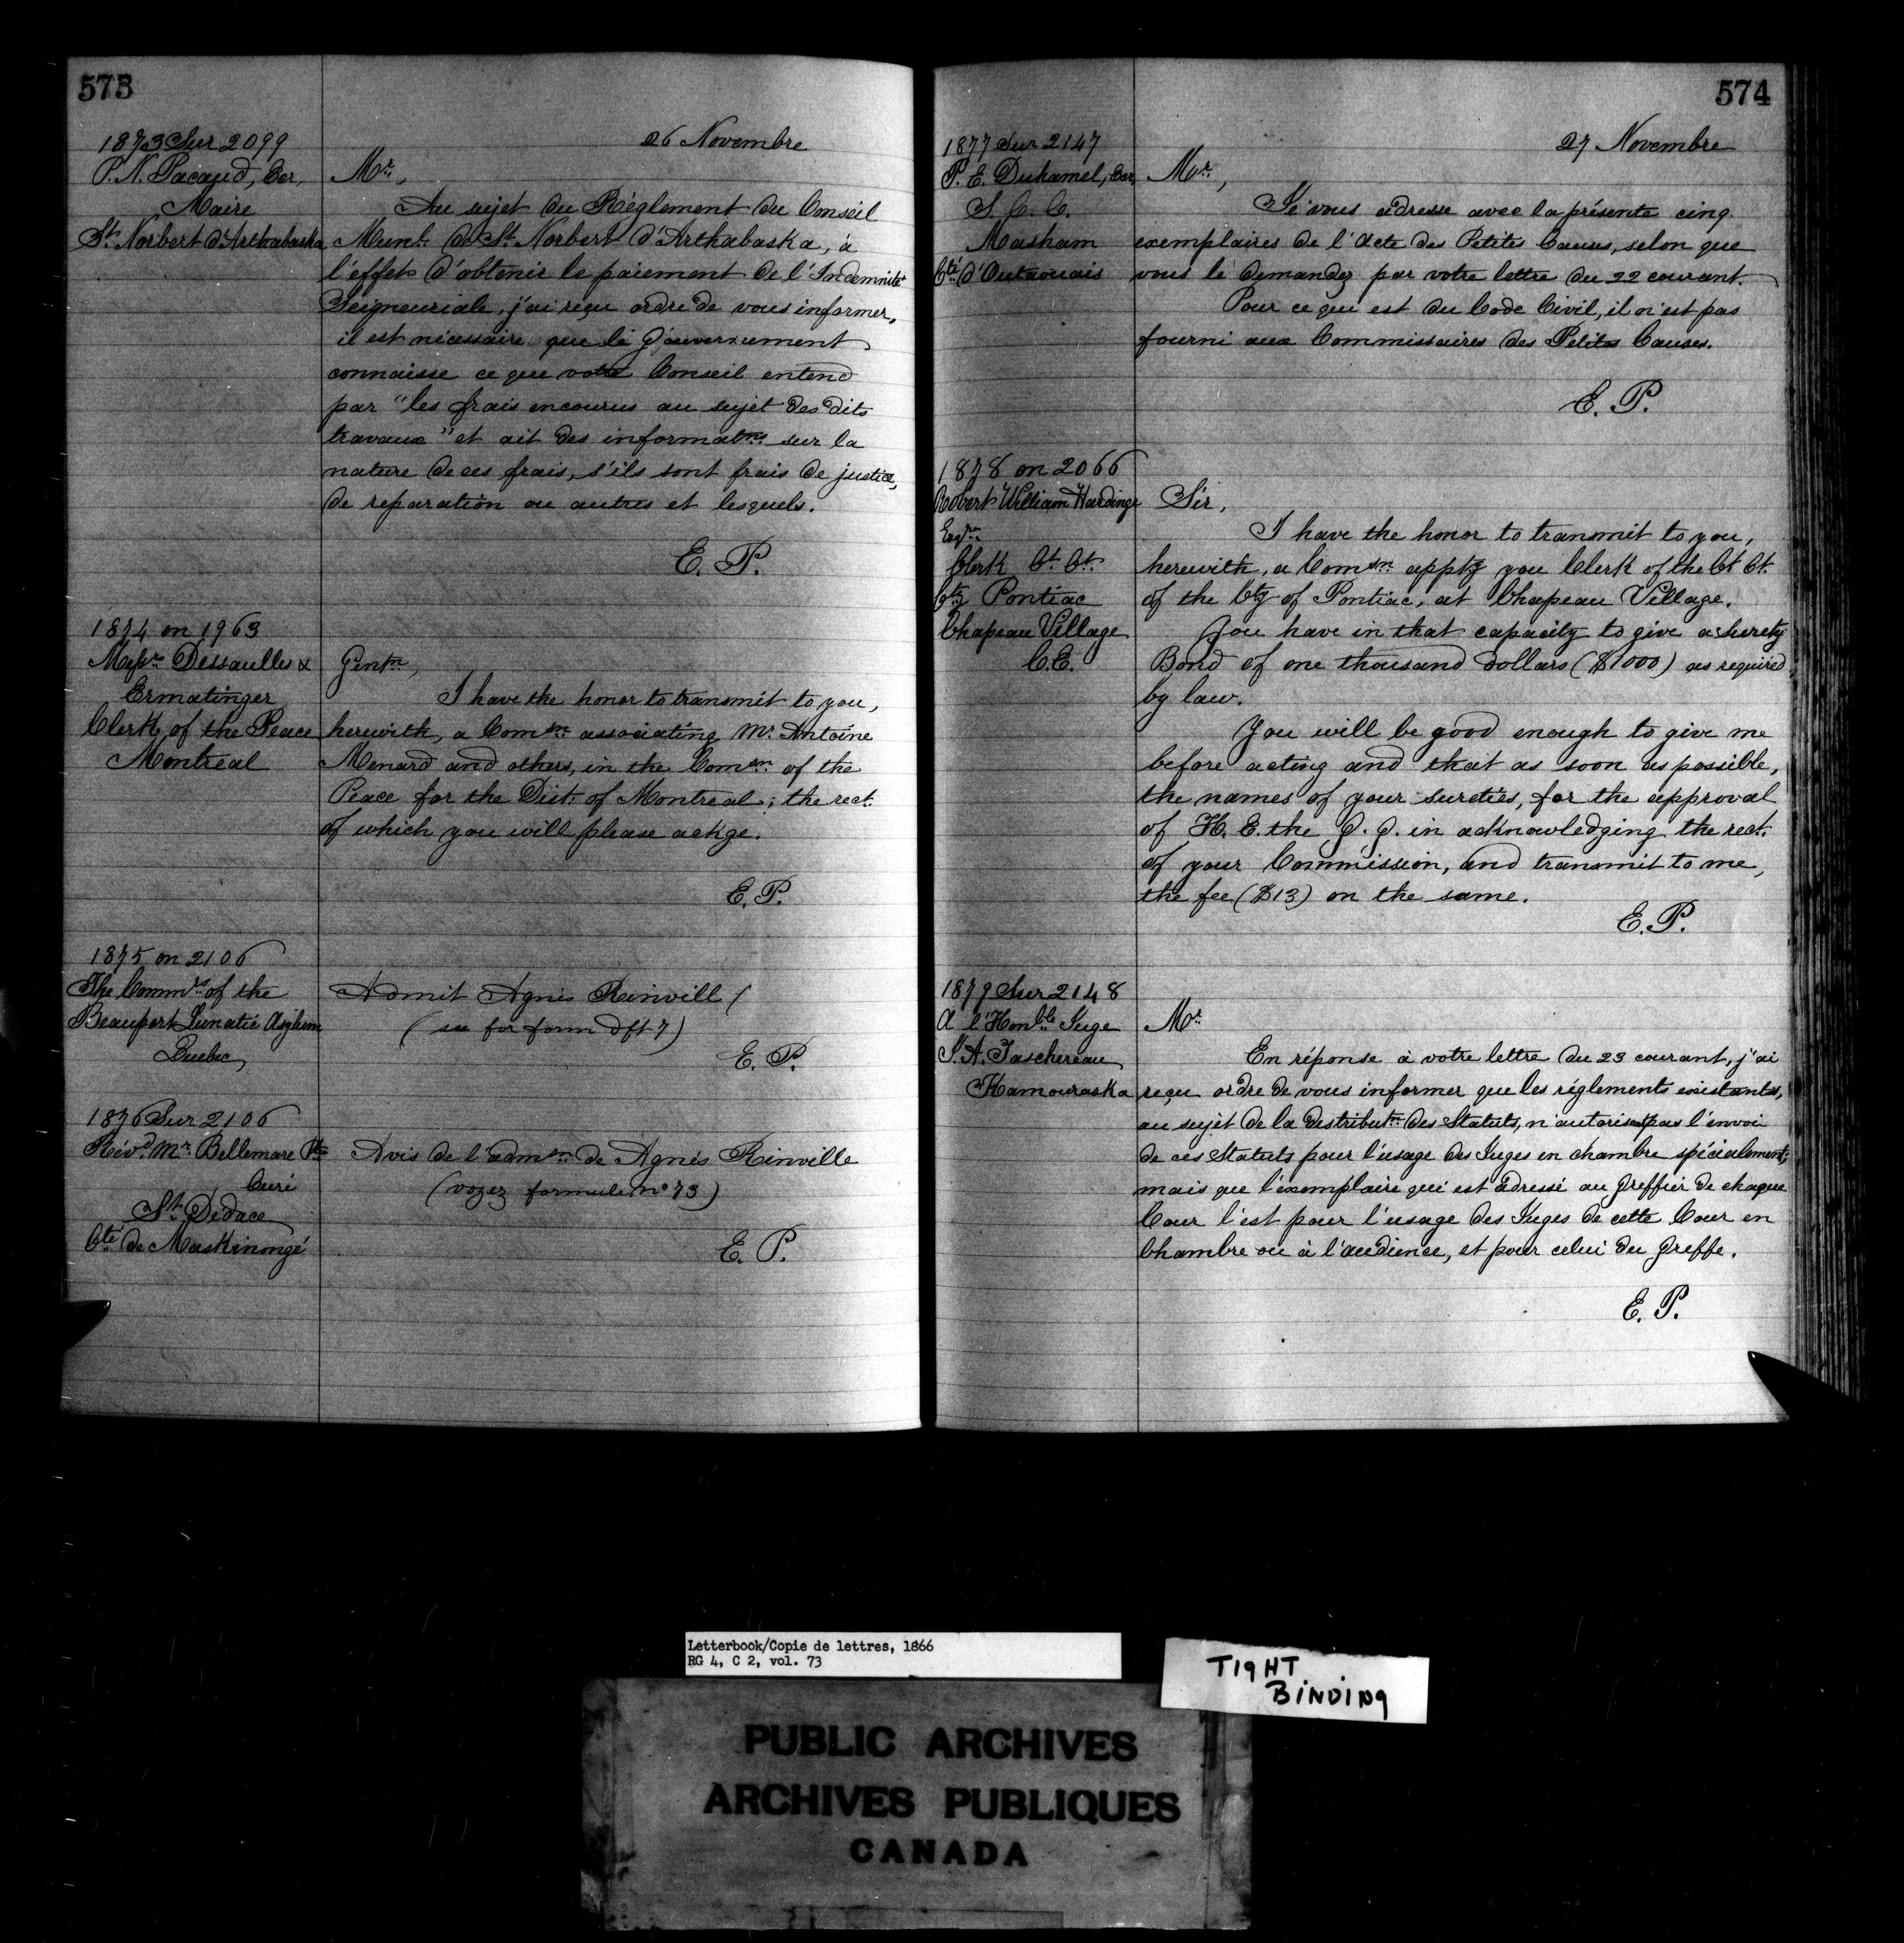 573
26 Novembre
1873 Sur 2099
P. N. Pacaud, Ecr,
Maire
St. Norbert d'Arthabaska
Mr.,
Au sujet du Règlement du Conseil
Munl. de St. Norbert d'Arthabaska, à
l'effet d'obtenir le paiement de l'Indemnité
Seigneuriale, j'ai reçu ordre de vous informer,
il est nécessaire que le Gouvernement
connaisse ce que votre Conseil entend
par "les frais encourus au sujet des dits
travaux" et ait des informatns. sur la
nature de ces frais, s'ils sont frais de justice,
de reparation ou autres et lesquels.
E. P.
1874 on 1963
Messrs. Dessaulles &
Ermatinger
Clerk of the Peace
Montreal
Gentn,
I have the honor to transmit to you,
herewith, a Comsn. associating Mr. Antoine
Menard and others, in the Comsn. of the
Peace for the Dist. of Montreal; the rect.
of which you will please ackge.
E. P.
1875 on 2106
The Commrs. of the
Beauport Lunatic Asylum
Quebec,
Admit Agnis Rinvill (
(see for form dft 7)
E. P.
1876 Sur 2106
Révd. Mr. Bellemare Ptre
Curé
St. Didace
Cté de Maskinongé
Avis de l'admsn. de Agnés Rinville
(voyez formule no 73)
E. P.
574
27 Novembre
1877 Sur 2147
P. E. Duhamel, Ecr,
S. C. C.
Masham
Cté d'Outaouais
Mr.,
Je vous adresse avec la présente cinq
exemplaires de l'Acte des Petites Causes, selon que
vous le demandez par votre lettre du 22 courant.
Pour ce qui est du Code Civil, il n'est pas
fourni aux Commissaires des Petites Causes.
E. P.
1878 on 2066
Robert William Hardinge
Esqre
Clerk Ct. Ct.
Cty Pontiac
Chapeau Village
C.E.
Sir,
I have the honor to transmit to you,
herewith, a Comsn. apptg you Clerk of the Ct. Ct.
of the Cty of Pontiac, at Chapeau Village.
You have in that capacity to give a surety
Bond of one thousand dollars ($1000) as required
by law.
You will be good enough to give me
before acting and that as soon as possible,
the names of your sureties, for the approval
of H. E. the G. G. in acknowledging the rect.
of your Commission, and transmit to me,
the fee ($13) on the same.
E. P.
1879 Sur 2148
A l'Honble. Juge
J. A. Taschereau
Kamouraska
Mr.
En réponse à votre lettre du 23 courant, j'ai
reçu ordre de vous informer que les réglements existants,
au sujet de la distributn. des Statuts, n'autorisent pas l'envoi
de ces Statuts pour l'usage des Juges en chambre spécialement;
mais que l'exemplaire qui est adressé au Greffier de chaque
Cour l'est pour l'usage des Juges de cette Cour en
Chambre ou à l'audience, et pour celui du Greffe.
E. P.
Letterbook/Copie de lettres, 1866
RG 4, C 2, vol. 73
TIGHT
BINDING
PUBLIC ARCHIVES
ARCHIVES PUBLIQUES
CANADA